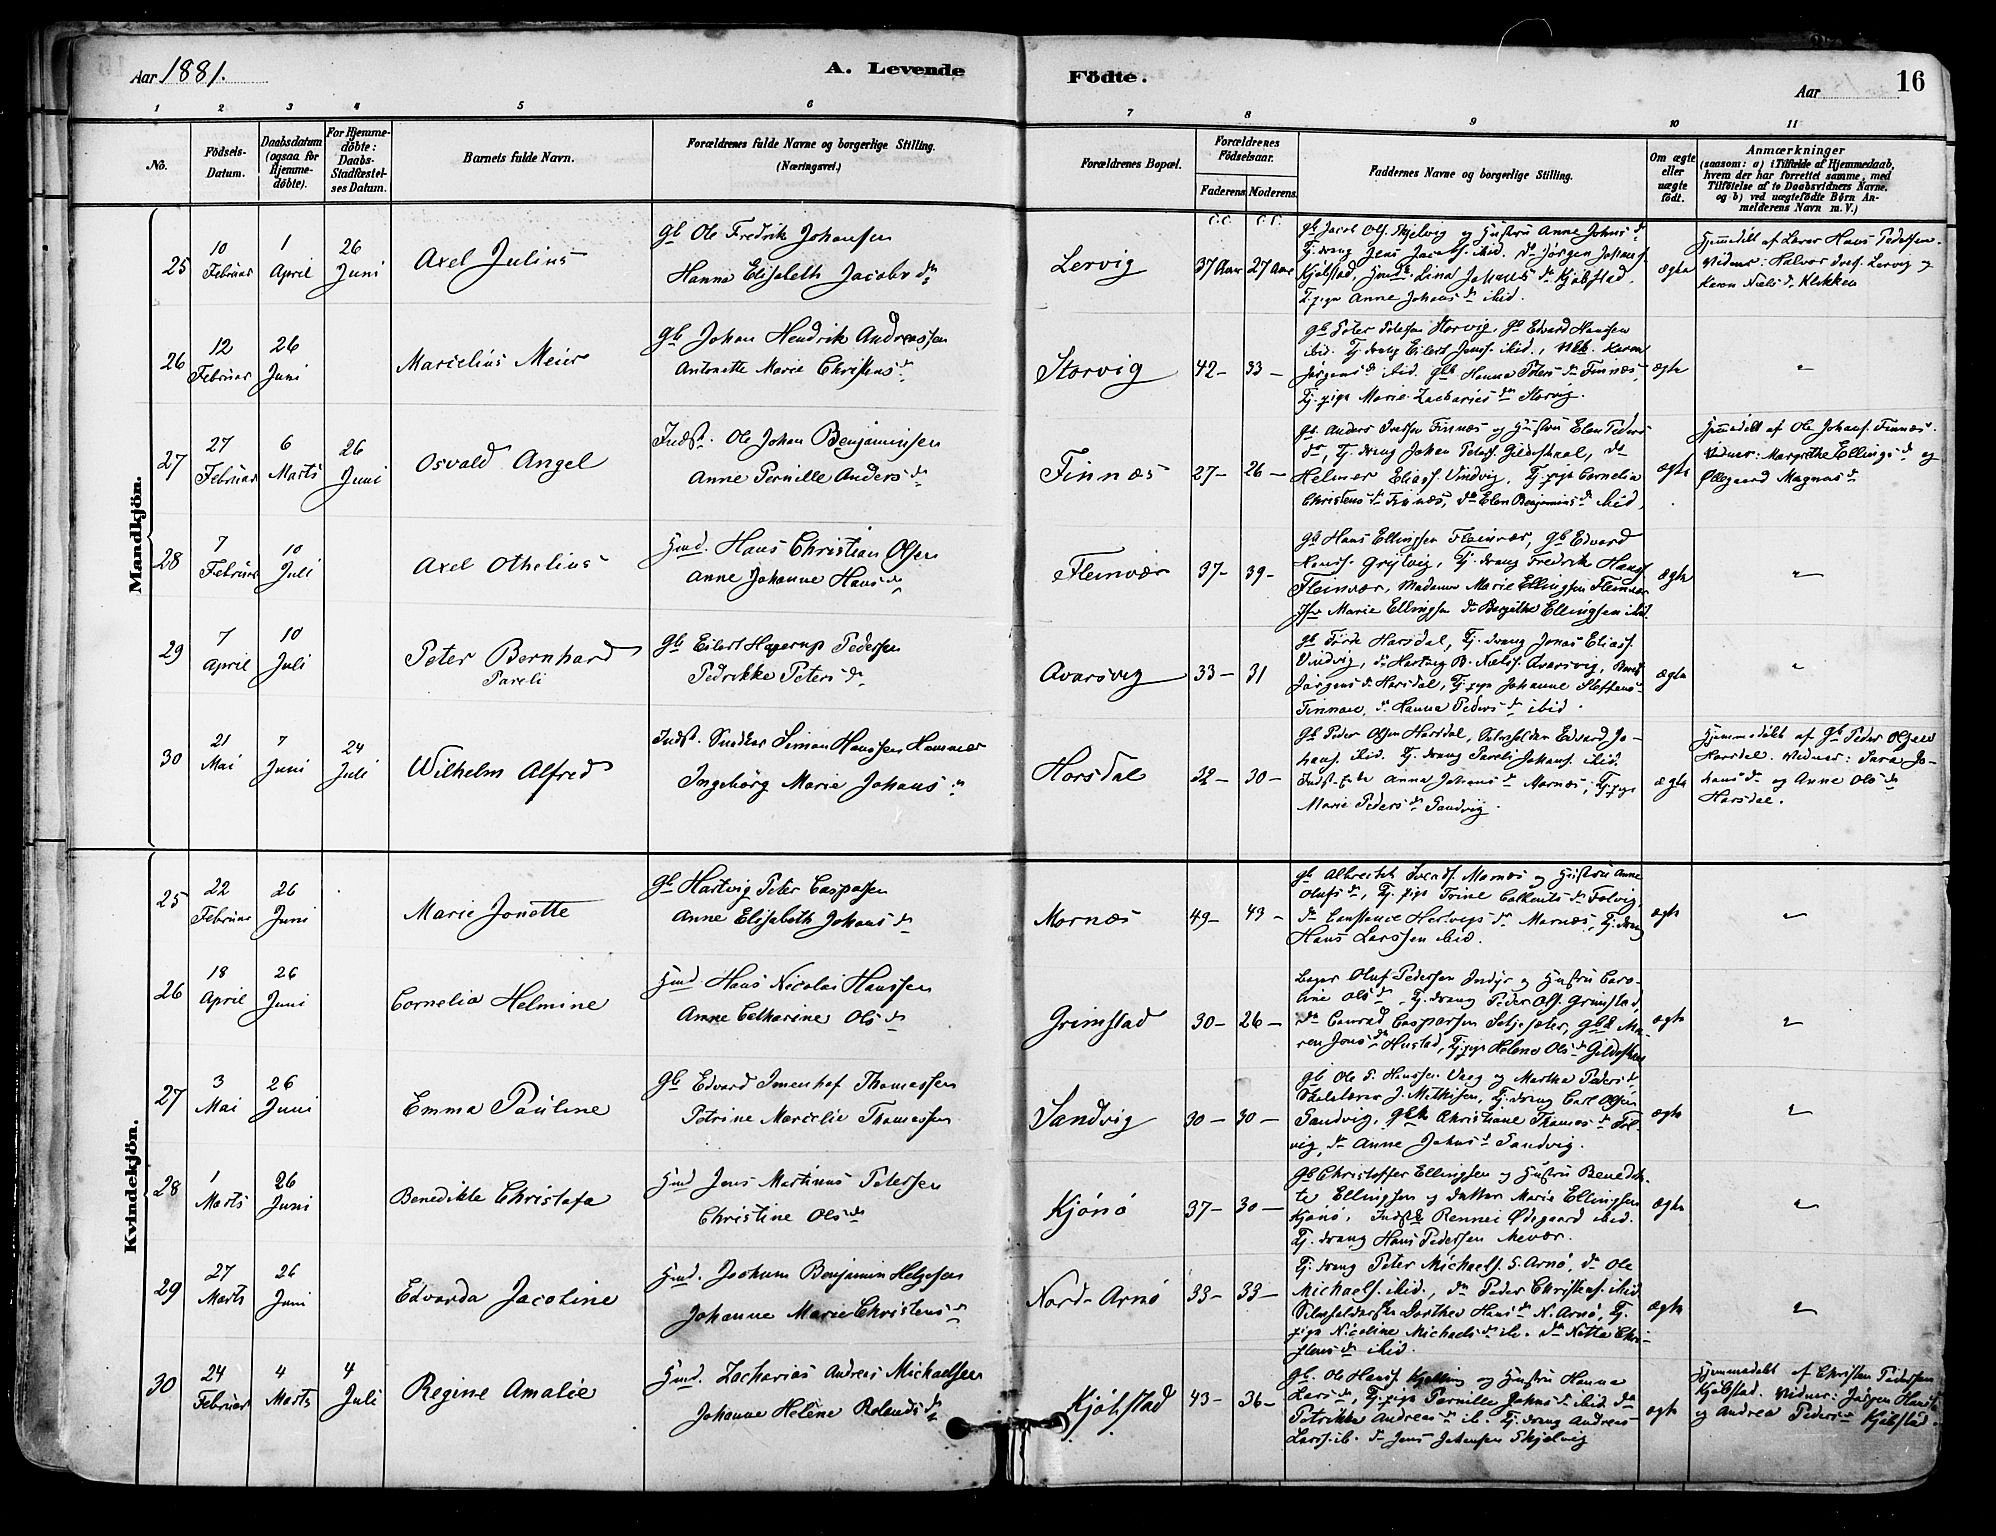 Aar 1881.
A. Levende
Födte.
Aar
16
1 2 3 4 5 6 7 8 9 10 11
No.
Födsels-
Datum.
Daabsdatum
(ogsaa for
Hjemme-
döbte).
For Hjemme-
döbte:
Daabs-
Stadfæstel-
ses Datum.
Barnets fulde Navn.
Forældrenes fulde Navne og borgerlige Stilling.
(Næringsvei.)
Forældrenes Bopæl.
Forældrenes
Födselsaar.
Faderens. Moderens.
Faddernes Navne og borgerlige Stilling.
Om ægte
eller
uægte
födt.
Anmærkninger
(saasom: a) i Tilfælde af Hjemmedaab,
hvem der har forrettet samme, med
Tilföielse af to Daabsvidners Navne.
og b) ved uægtefödte Börn An-
melderens Navn m. V.)
Mandkjön.
25
10
Februar
1
April
26
Juni
Axel Julius
Gb Ole Fredrik Johansen
Hanna Elisabeth Jacobsdr
Lervig
37 Aar 27 Aar
Gb Jacob Ols. Skjelvig og Hustru Anne Johnsdr
Tj. dreng Jens Jacobs. ibid. do Jörgen Johans.
Kjölstad, Lina Johansdr Kjölstad,
Tj. pige Anne Johansdr ibid.
ægte
Hjemmedöbt af Lærer Hans Pedersen.
Vidner: Halvor Lervig og
Karen Nielsdr Klokken
26
12
Februar
26
Juni
Marcelius Meier
Gb Johan Hendrik Andreassen
Antonette Marie Christensdr
Storvig
42 - 33 -
Gb Peter Petersen Storvig, Gb Edvard Hanssen
ibid. Tj. dreng Eilert Jenss. ibid., Karen
Jörgensdr ibid. Gbk Hanna Petersdr Finnæs,
Tj. pige Marie Zachariesdr Storvig.
ægte
"
27
27
Februar
6
Marts
26
Juni
Osvald Angel
Indst. Ole Johan Benjaminsen
Anne Pernille Andersdr
Finnæs
27 - 26 -
Gb. Anders Iversen Finnæs og Hustru Elen Peders
dr, Tj. dreng Johan Peters. Gildeskaal, do
Helmer Eliass. Vindvig, Tj. pige Cornelia
Christensdr Finnæs, do Elen Benjaminsdr ibid.
ægte
Hjemmedöbt af Ole Johans. Finnæs.
Vidner: Margrethe Ellingsdr og
Ollegaard Magnusdr
28
7
Februar
10
Juli
Axel Othelius
Hmd. Hans Christian Olsen
Anne Johanne Hansdr
Fleinvær
37 - 39 -
Gb Hans Ellingsen Fleinvær, Gb Edvard
Hanss. Tj. dreng Fredrik Hanss.
Fleinvær, Madame Marie Ellingsen Fleinvær
Jfr Marie Ellingsen do Bergithe Ellingsen ibid.
ægte
"
29
7
April
10
Juli
Peter Bernhard
Pareli
Gb Eilert Hagerup Pedersen
Pedrikke Petersdr
Avarsvig
33 - 31
Gb Horsdal, Tj. dreng Jonas Eliass.
Vindvig, do Hartvig B. Niels. Avarsvig,
Jörgensdr Horsdal, Tj. pige Johanne Steffens-
Finnæs, do Hanna Pedersdr ibid.
ægte
"
30
21
Mai
7
Juni
24
Juli
Wilhelm Alfred
Indst. Snedker Simon Hanssen Hammer
Ingeborg Marie Johansdr
Horsdal
32 - 30 -
Gb Peder Olsen Horsdal, Edvard Jo-
hans. ibid. Tj. dreng Pareli Johans. ibid.
Indst. Anna Johansdr Mornæs, Tj. pige
Marie Pedersdr Sandvig.
ægte
Hjemmedöbt af Gb Peder Olsen
Horsdal. Vidner: Sara Jo-
hansdr og Anne Olsdr
Horsdal.
Kvindekjön.
25
22
Februar
26
Juni
Marie Jonette
Gb Hartvig Peter Caspersen
Anne Elisabeth Johansdr
Mornæs
49 - 43 -
Gb Albregt Svends. Mornæs og Hustru Anne
Olufsdr, Tj. pige Trine
do Constance Hertvigsdr Mornæs, Tj. dreng
Hans Larssen ibid.
ægte
"
26
18
April
26
Juni
Cornelia Helmine
Hmd. Hans Nicolai Hanssen
Anne Catharine Olsdr
Grimstad
30 - 26 -
Oluf Pedersen Indyr og Hustru Caro-
line Olsdr, Tj. dreng Peder Ols. Grimstad,
do Conrad Caspersen Gbk Ma-
ren Jonsdr Hustad, Tj. pige Helene Olsdr Gildeskaal
ægte
"
27
3
Mai
26
Juni
Emma Pauline
Gb Edvard Imenhof Thomassen
Petrine Marcelie Thomassen
Sandvig
30 - 30 -
Gb Ole P. Hanssen Vaag og Martha Pedersdr
Skolelærer J. Mathisen, Tj. dreng Carl Olsen
Sandvig, Gbk Christiane Thomasdr
vig, do Anne Johnsdr Sandvig.
ægte
"
28
1
Marts
26
Juni
Benedikte Christofa
Hmd Jens Martinus Petersen
Christine Olsdr
Kjönö
37 - 30 -
Gb Christoffer Ellingsen og Hustru Benedik-
te Ellingsen og datter Marie Ellingsen
Kjönö, Rennei Ödegaard ibid.
Tj. dreng Hans Pedersen Mevær.
ægte
"
29
27
Marts
26
Juni
Edvarda Jacobine
Hmd. Jochum Benjamin Helgesen
Johanne Marie Christensdr
Nord-Arnö
33 - 33 -
Tj. dreng Peter Michaels. S. Arnö, do Ole
Michaels. ibid., do Peder Christens. ibid.
Dorthea Hansdr N. Arnö, Tj.
pige Nicoline Michaelsdr ib. do Netta Chri-
stensdr ibid.
ægte
"
30
24
Februar
4
Marts
4
Juli
Regine Amalie
Hmd. Zacharias Andreas Michaelsen
Johanne Helene Rolandsdr
Kjölstad
43 - 36 -
Gb. Ole Hanss. Kjelling og Hustru Hanna
Larsdr, Tj. pige Pernille Johnsdr ibid. do
Petrikke Andreasdr ib. Tj. dreng Andreas
Larss. ib. do Jens Johansen Skjelvig
ægte
Hjemmedöbt af Christen Pedersen
Kjölstad. Vidner: Jörgen Hans
og Andrea Pedersdr Kjölstad.